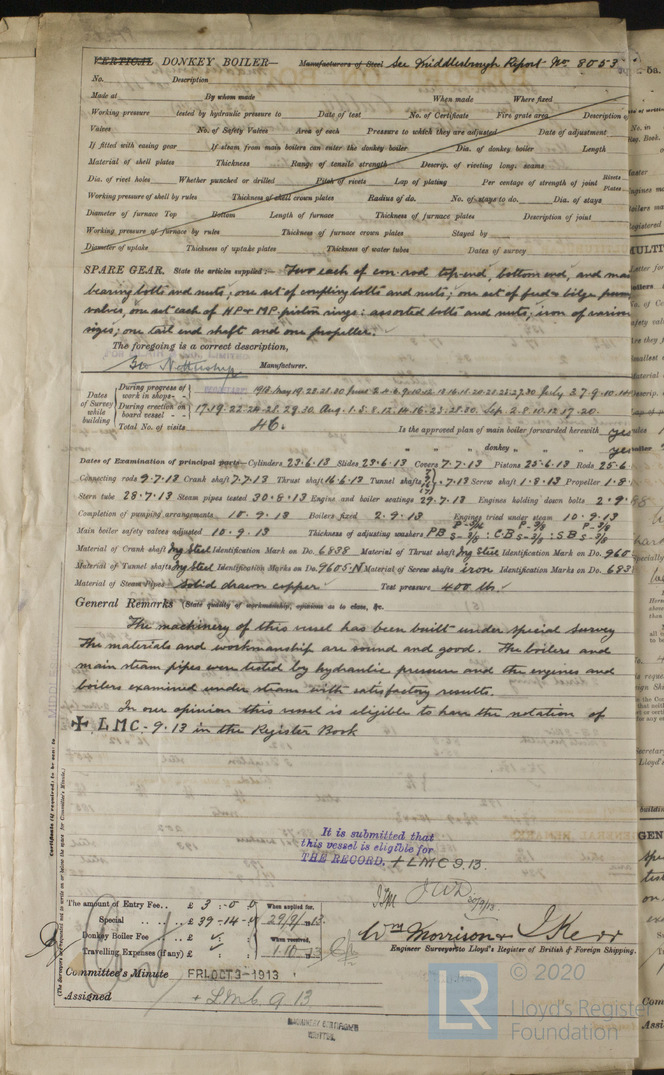 VERTICAL DONKEY BOILER— Manufacturers of Steel See Middlesbrough Report No 8053
No. Description
Made at By whom made When made Where fixed
Working pressure tested by hydraulic pressure to Date of test No. of Certificate Fire grate area Description of
Valves No. of Safety Valves Area of each Pressure to which they are adjusted Date of adjustment
If fitted with easing gear If steam from main boilers can enter the donkey boiler Dia. of donkey boiler Length
Material of shell plates Thickness Range of tensile strength Descrip. of riveting long. seams
Dia. of rivet holes Whether punched or drilled Pitch of rivets Lap of plating Per centage of strength of joint Rivets Plates
Working pressure of shell by rules Thickness of shell crown plates Radius of do. No. of stays to do. Dia. of stays
Diameter of furnace Top Bottom Length of furnace Thickness of furnace plates Description of joint
Working pressure of furnace by rules Thickness of furnace crown plates Stayed by
Diameter of uptake Thickness of uptake plates Thickness of water tubes Dates of survey
SPARE GEAR. State the articles supplied:— Two each of con-rod top-end, bottom end, and main
bearing bolts and nuts; one set of coupling bolts and nuts; one set of feed & bilge pump
valves, one set each of HP & MP piston rings: assorted bolts and nuts; iron of various
sizes; one tail end shaft and one propeller.
The foregoing is a correct description,
Manufacturer.
Dates of Survey while building
During progress of work in shops - - 1913. May 19. 22. 21. 30 June 3. 4. 6. 9. 10. 12. 13. 16. 18. 20. 23. 25. 27. 30 July 3. 7. 9. 10. 14
During erection on board vessel - - 17. 19. 22. 24. 28. 29. 30. Aug. 1. 5. 8. 12. 14. 16. 23. 28. 30. Sep. 2. 8. 10. 12. 17. 20.
Total No. of visits 46. Is the approved plan of main boiler forwarded herewith yes
" " donkey " " " yes
Dates of Examination of principal parts— Cylinders 23.6.13 Slides 23.6.13 Covers 7.7.13 Pistons 25.6.13 Rods 25.6
Connecting rods 9.7.13 Crank shaft 7.7.13 Thrust shaft 16.6.13 Tunnel shafts 7.13 Screw shaft 1.8.13 Propeller 1.8.
Stern tube 28.7.13 Steam pipes tested 30.8.13 Engine and boiler seatings 29.7.13 Engines holding down bolts 2.9.
Completion of pumping arrangements 18.9.13 Boilers fixed 2.9.13 Engines tried under steam 10.9.13
Main boiler safety valves adjusted 10.9.13 Thickness of adjusting washers PB : CB : SB
Material of Crank shaft Ing Steel Identification Mark on Do. 6838 Material of Thrust shaft Ing Steel Identification Mark on Do. 960
Material of Tunnel shafts Ing Steel Identification Marks on Do. 9605.N Material of Screw shafts iron Identification Marks on Do. 683
Material of Steam Pipes Solid drawn copper Test pressure 400 lb.
General Remarks (State quality of workmanship, opinions as to class, &c.
The machinery of this vessel has been built under special survey
The materials and workmanship are sound and good. The boilers and
main steam pipes were tested by hydraulic pressure and the engines and
boilers examined under steam with satisfactory results.
In our opinion this vessel is eligible to have the notation of
✠ LMC - 9.13 in the Register Book
It is submitted that
this vessel is eligible for
THE RECORD. + LMC 9.13.
The amount of Entry Fee.. £ 3 : 0 0 When applied for,
Special .. .. £ 39 - 14 - 0 29/9/13.
Donkey Boiler Fee .. £ When received,
Travelling Expenses (if any) £ 1.10.13
Wm Morrison & J Kerr
Engineer Surveyors to Lloyd's Register of British & Foreign Shipping.
Committee's Minute FRI. OCT 3 - 1913
Assigned + LMC 9 13
Certificate (if required) to be sent to
(The Surveyors are requested not to write on or below the space for Committee's Minute.)
© 2020
LR Lloyd's Register
Foundation